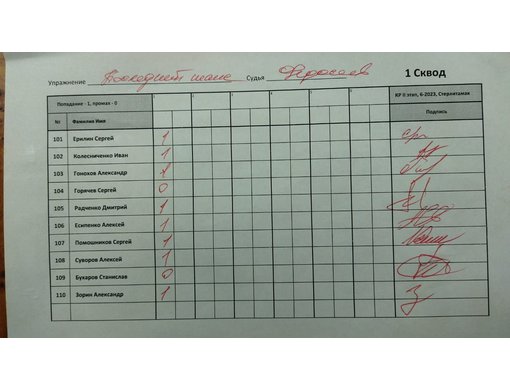 Упражнение Последний шанс Судья 1 Сквод
Попадание - 1, промах - 0 1 2 3 4 5 6 КР II этап, 6-2023, Стерлитамак
№ Фамилия Имя Подпись
101 Ерилин Сергей 1
102 Колесниченко Иван 1
103 Гонохов Александр 1
104 Горячев Сергей 0
105 Радченко Дмитрий 1
106 Есипенко Алексей 1
107 Помошников Сергей 1
108 Суворов Алексей 1
109 Бухаров Станислав 0
110 Зорин Александр 1